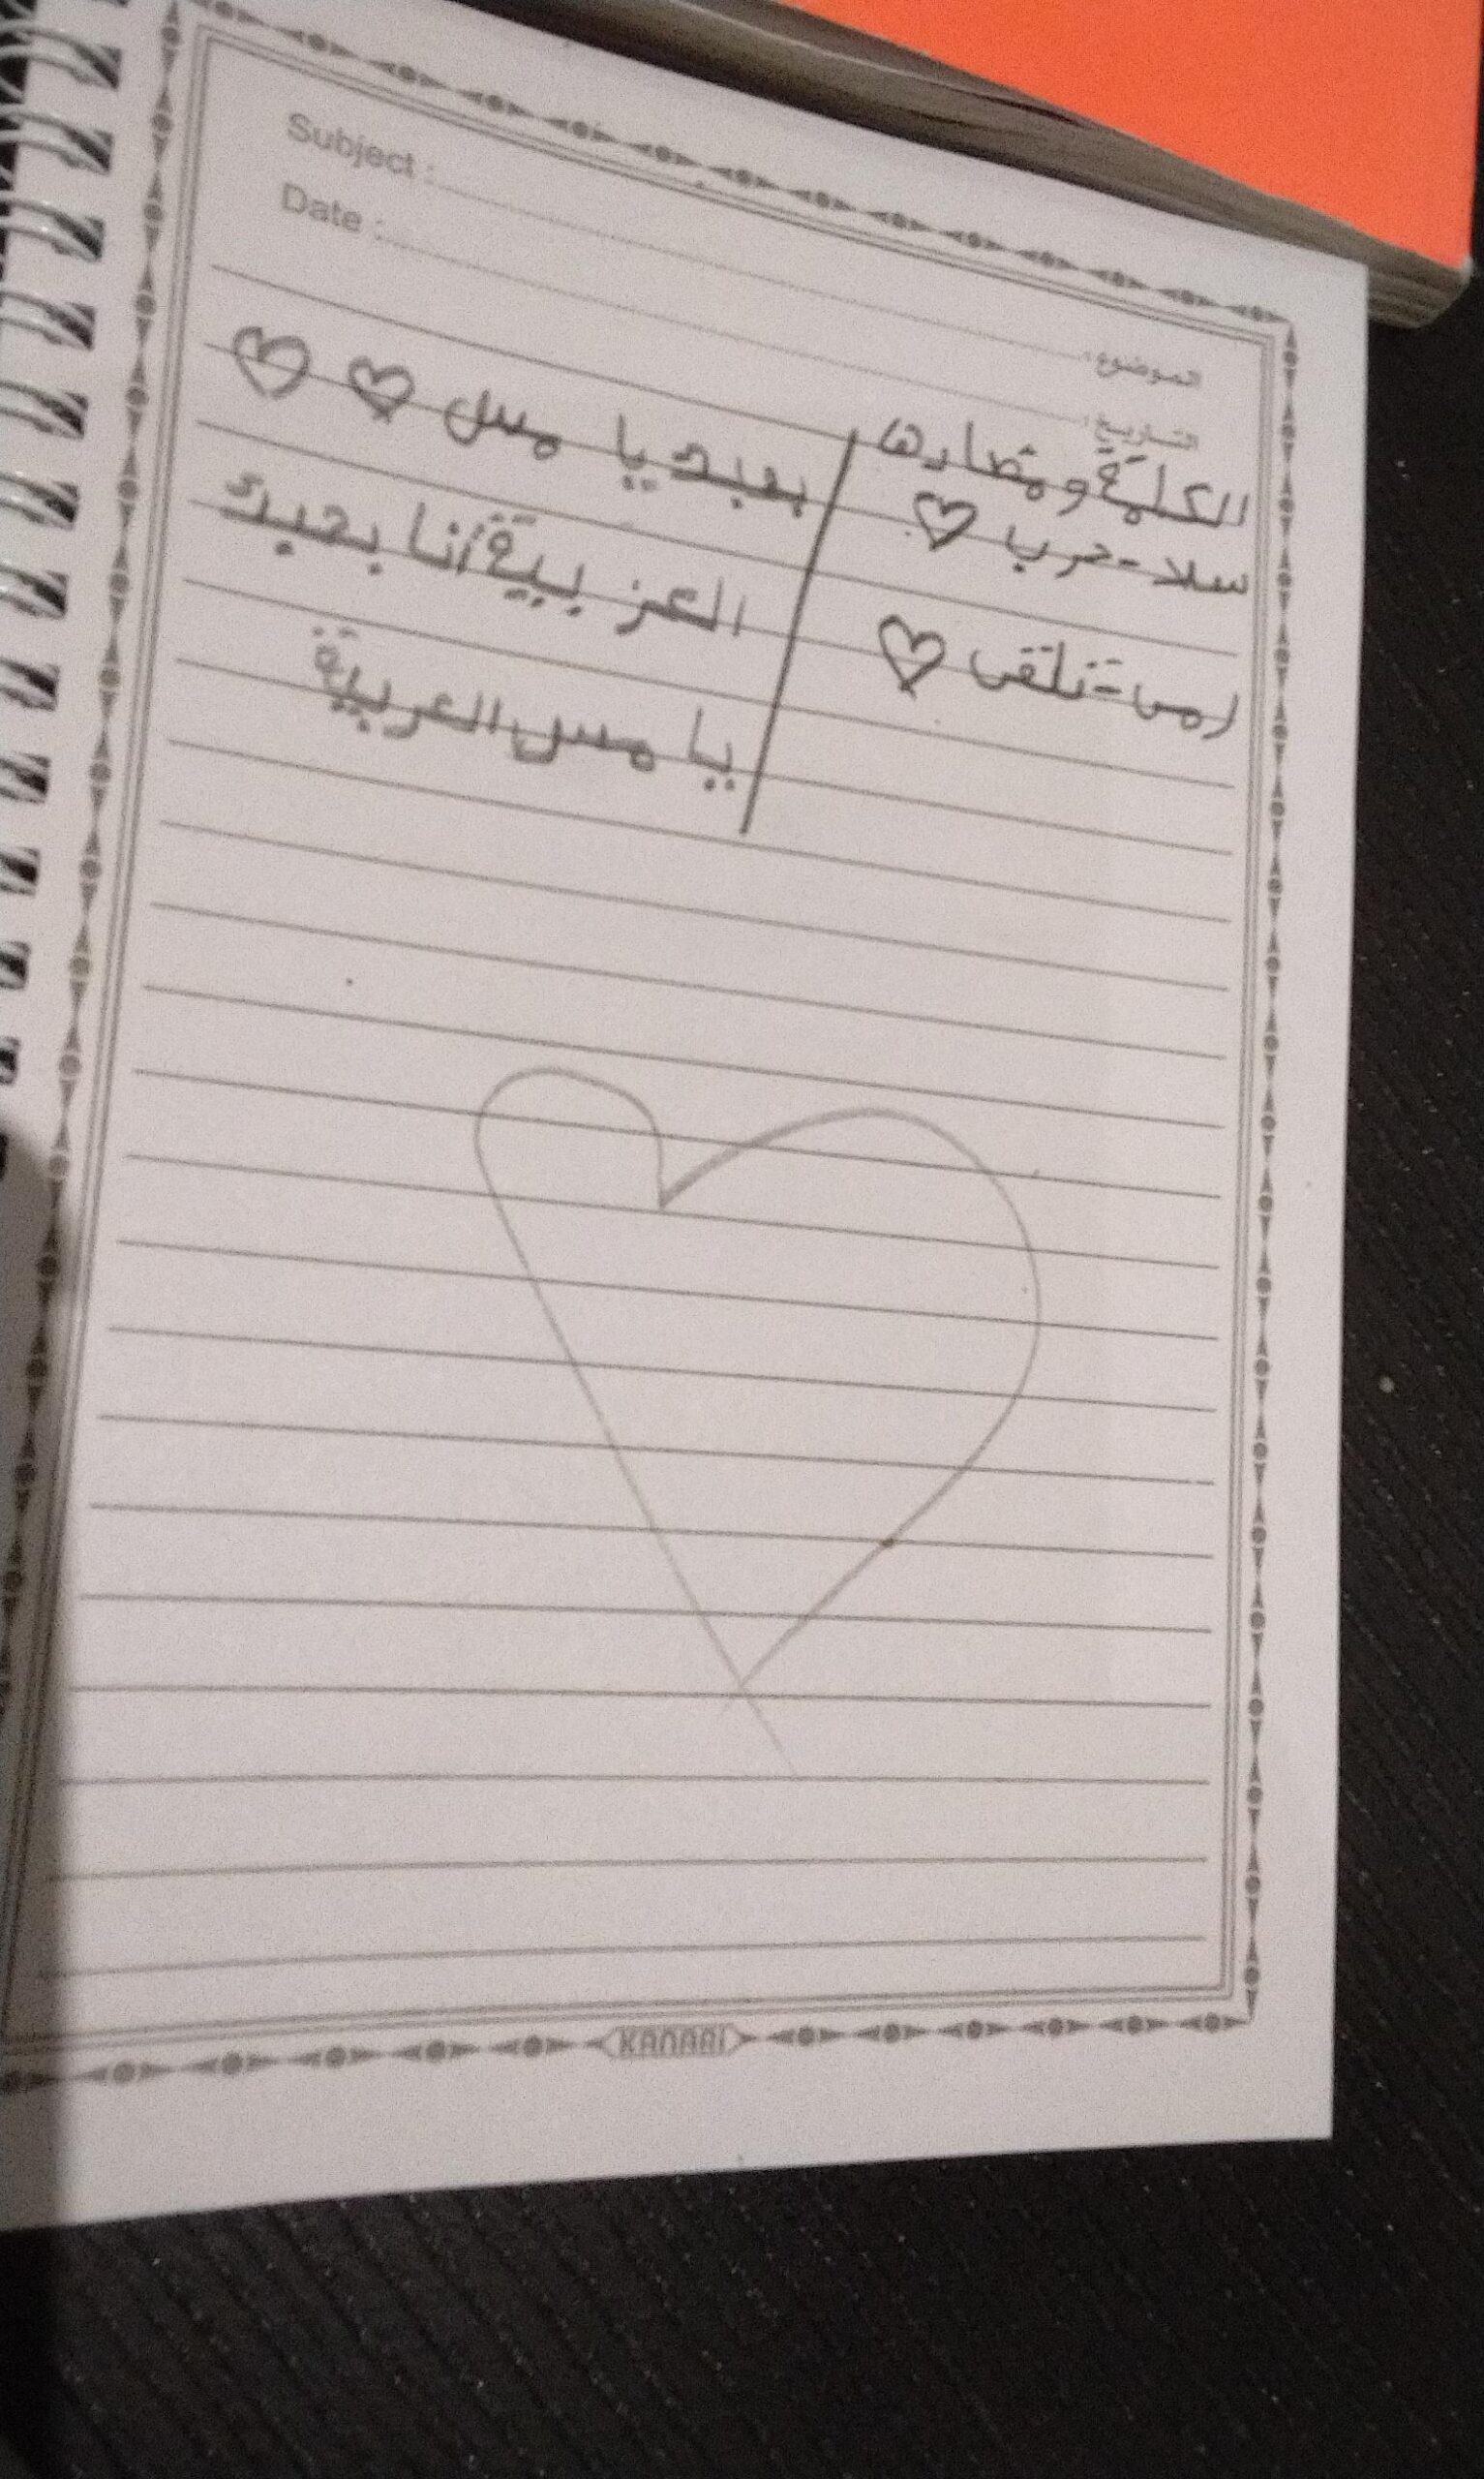 Subject :
Date :
الموضوع :
التاريخ :
الكلمة ومضادها
سلا - حرب
رمى - تلقى
بعبد يا مس
العز بية أنا بحبك
يا مس العربية
KANARI